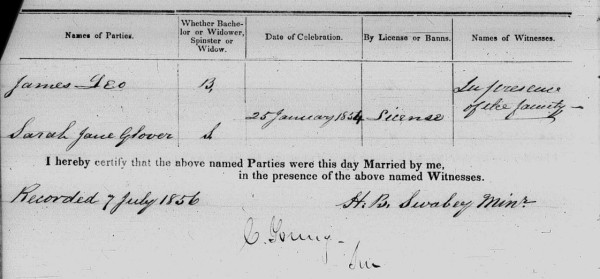 Names of Parties. Whether Bachelor or Widower, Spinster or Widow. Date of Celebration. By License or Banns. Names of Witnesses.
James Geo B, In presence
of the family
25 January 1854 License
Sarah Jane Glover S
I hereby certify that the above named Parties were this day Married by me,
in the presence of the above named Witnesses.
Recorded 7 July 1856 H. B. Swabey Minr.
C. Young